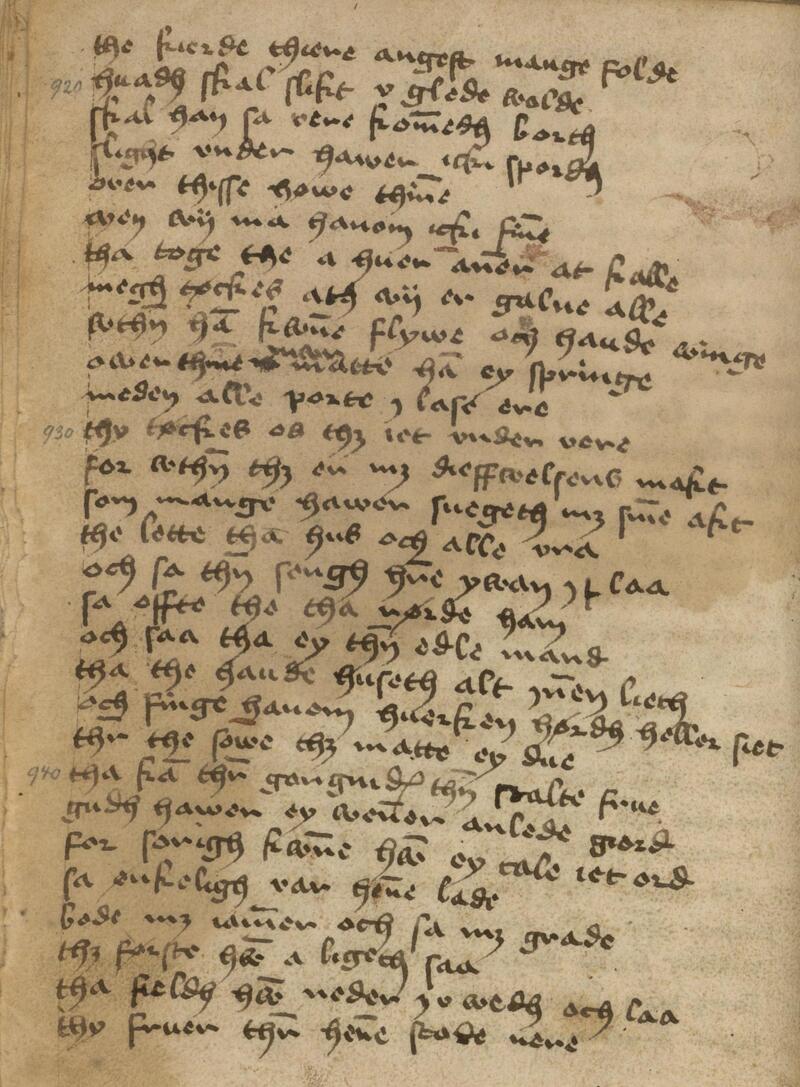 the kierde thiere angest mange folde
920 huadh skal slikt v glede wolde
skal han sa vere komedh borth
slight vnder hawer icki spordh
over thisse howe thinē
wen wij ma hanom icki finē
tha toge the a huer anen at kalle
megh tøckes ath wij er galne alle
wthn hā kwnē flywe och haude winge
ower thinē mwr matte hā ey springe
meden alle porte ı lase ere
930 thy tøckes os thz iet vnder vere
for wthn thz er mz dieffwelsens makt
som mange hawer suegeth mz sinē akt
the lette tha hus och alle vra
och sa thn sengh hnē ywan laa
sa offte the tha nørde ham
och saa tha ey thn edle mand
tha the haude huseth alt ınen lieth
och finge hanom huerken hørdh heller siet
thr the sowe thz matte ey due
940 tha kā thn gongnid thn stalte frue
gudh hawer ey wenen anlede giord
for sorigh kwnē hw̄ ey tale iet ord
sa ønkeligh var henē lade
bode mz iamēr och sa mz grade
thz første hw̄ a ligeth saa
tha fieldh hw̄ neder ı v wedh och laa
thy fruer thn henē stode nere